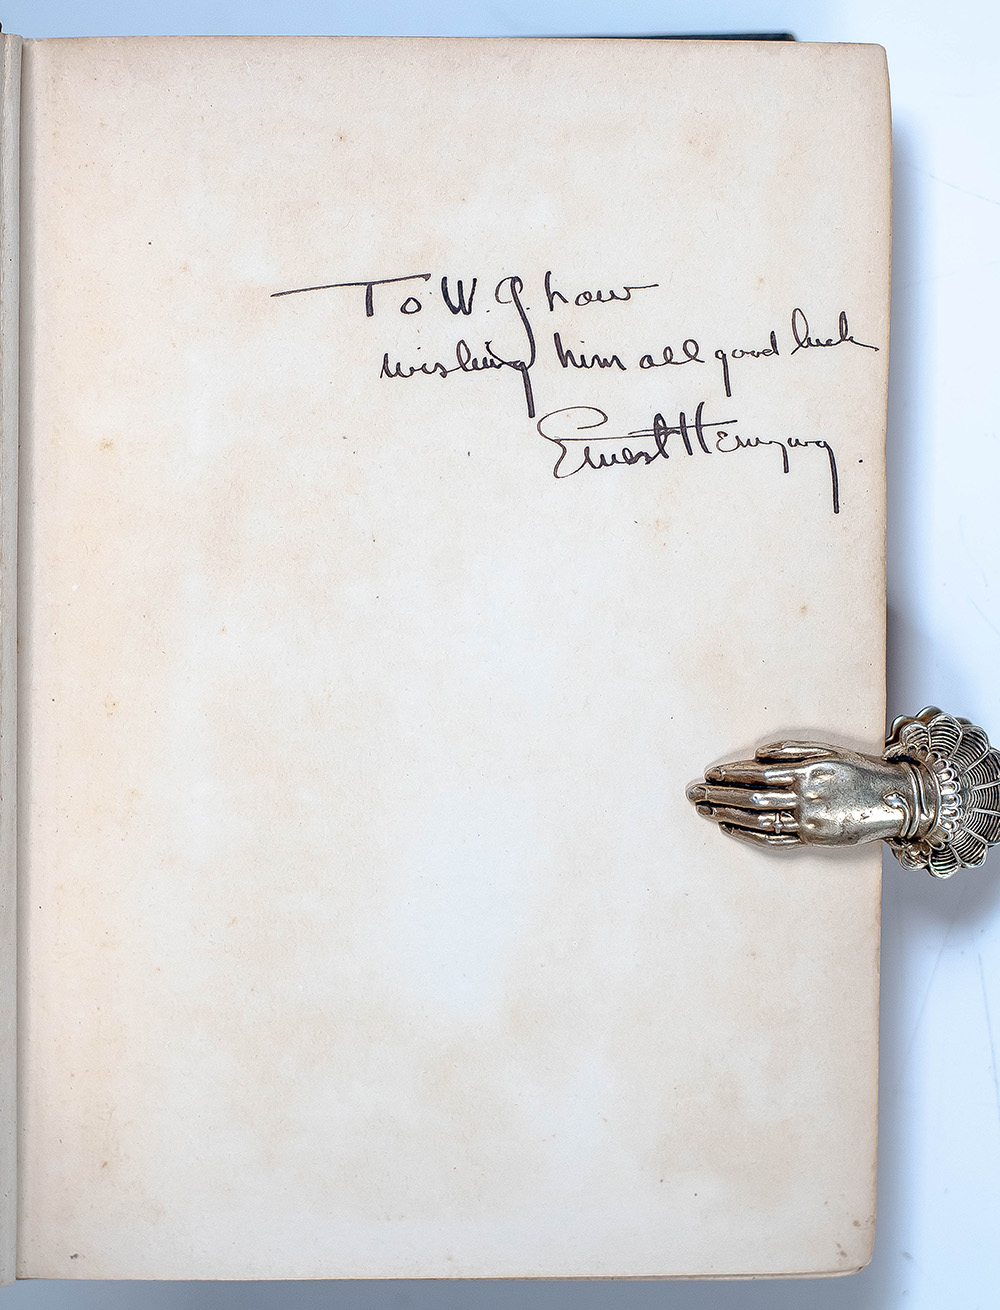 To W. G. Low
wishing him all good luck
Ernest Hemingway.